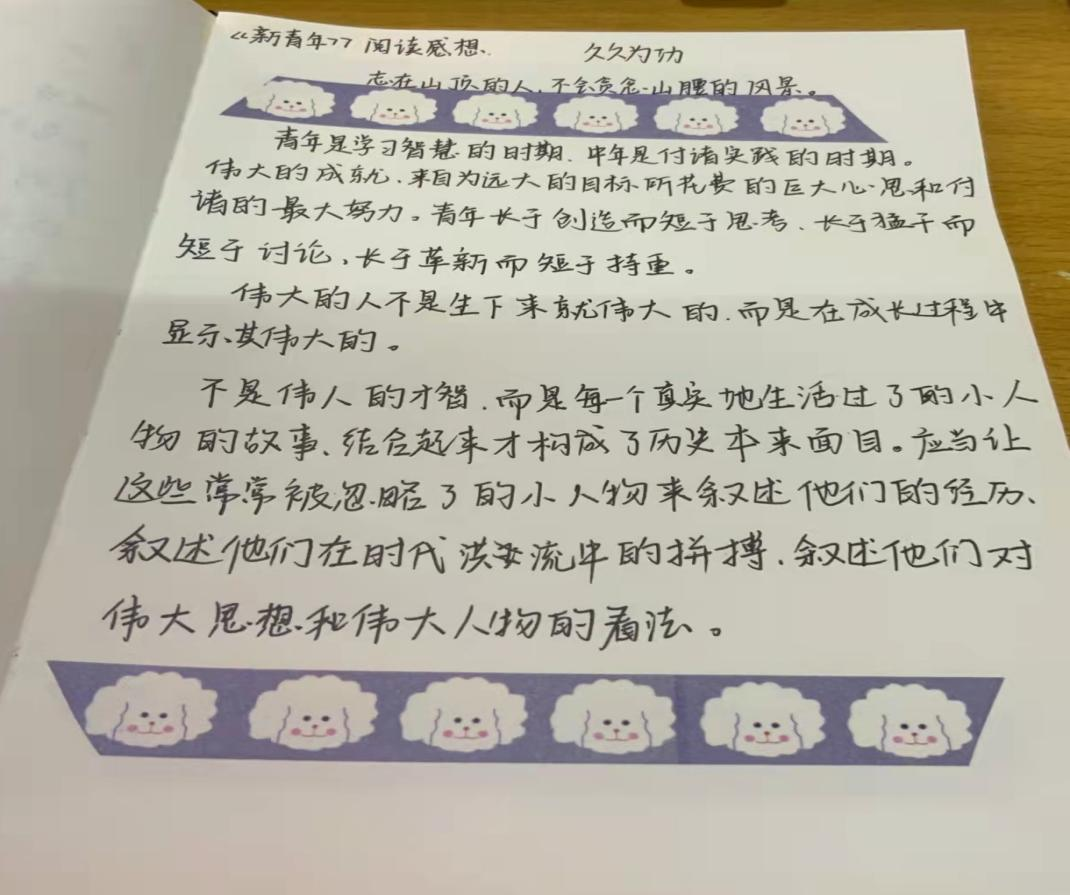 《新青年》阅读感想. 久久为功
志在山顶的人,不会贪念山腰的风景。
青年是学习智慧的时期、中年是付诸实践的时期。
伟大的成就、来自为远大的目标所花费的巨大心思和付
诸的最大努力。青年长于创造而短于思考、长于猛干而
短于讨论、长于革新而短于持重。
伟大的人不是生下来就伟大的、而是在成长过程中
显示其伟大的。
不是伟人的才智、而是每一个真实地生活过了的小人
物的故事、结合起来才构成了历史本来面目。应当让
这些常常被忽略了的小人物来叙述他们的经历、
叙述他们在时代洪流中的拼搏、叙述他们对
伟大思想和伟大人物的看法。